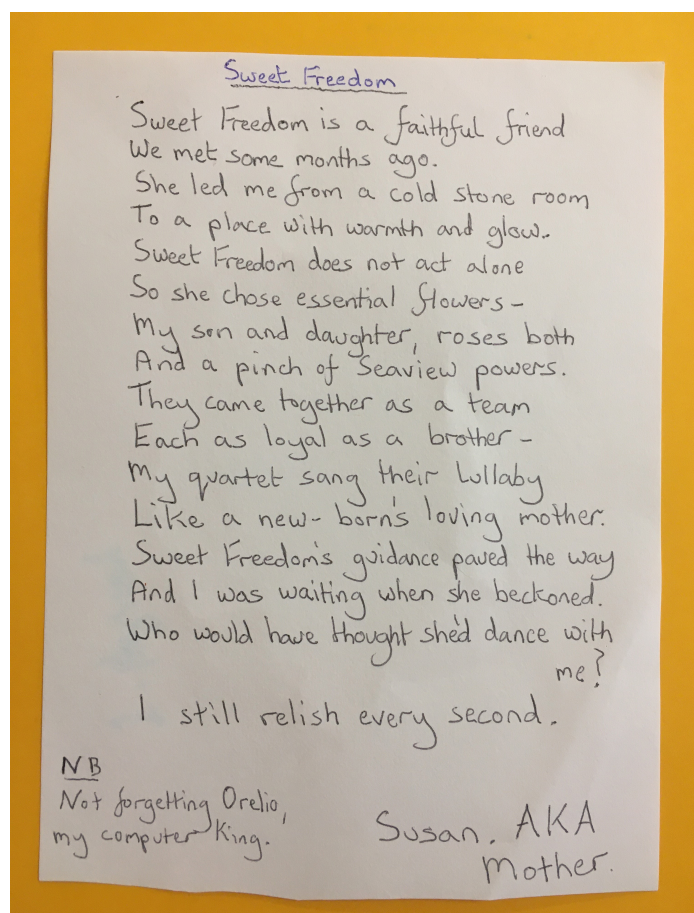 Sweet Freedom
Sweet Freedom is a faithful friend
We met some months ago.
She led me from a cold stone room
To a place with warmth and glow.
Sweet Freedom does not act alone
So she chose essential flowers -
My son and daughter, roses both
And a pinch of Seaview powers.
They came together as a team
Each as loyal as a brother -
My quartet sang their Lullaby
Like a new-born's loving mother.
Sweet Freedom's guidance paved the way
And I was waiting when she beckoned.
Who would have thought she'd dance with
me?
I still relish every second.
NB
Not forgetting Orelio,
my computer King.
Susan. AKA
Mother.